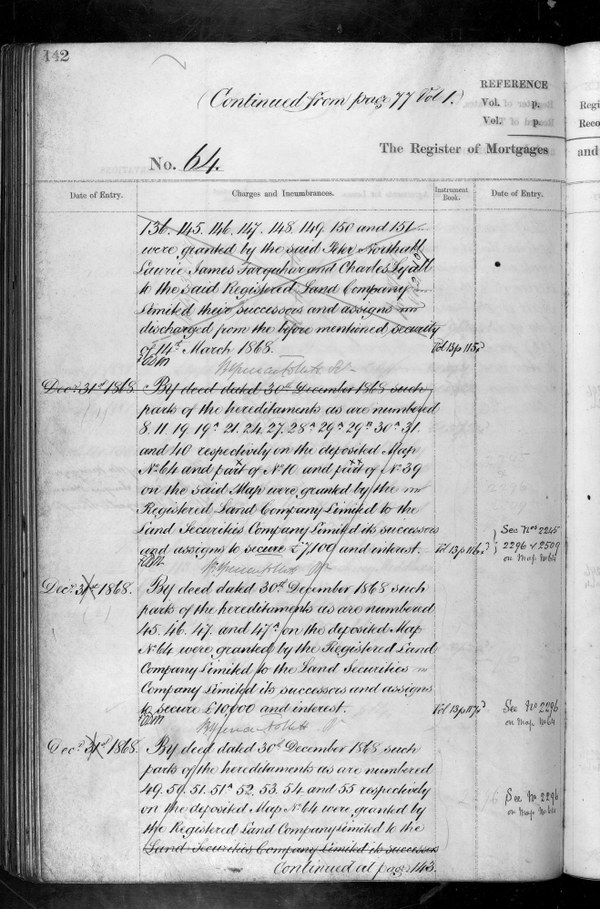 142
(Continued from page 77 Vol 1.)
REFERENCE
Vol. p.
Vol. p.
Regi
Reco
No. 64.
The Register of Mortgages
and
Date of Entry.
Charges and Incumbrances.
Instrument Book.
Date of Entry.
136. 145. 146. 147. 148. 149. 150 and 151
were granted by the said Peter Northall
Laurie James Farquhar and Charles Lyall
to the said Registered Land Company
Limited their successors and assigns
discharged from the before mentioned security
of 14th March 1868. Vol 13 p 115
Decr 31st 1868. By deed dated 30th December 1868 such
parts of the hereditaments as are numbered
8. 11. 19. 19a 21. 24. 27. 28a 29a 29b 30a 31
and 40 respectively on the deposited Map
No 64 and part of No 10 and part of No 39
on the said Map were granted by the
Registered Land Company Limited to the
Land Securities Company Limited its successors
and assigns to secure £7,100 and interest. Vol 13 p 116
See Nos 2245
2296 & 2509
on Map No 64
Decr 31st 1868. By deed dated 30th December 1868 such
parts of the hereditaments as are numbered
45. 46. 47. and 47a on the deposited Map
No 64 were granted by the Registered Land
Company Limited to the Land Securities
Company Limited its successors and assigns
to secure £10,000 and interest. Vol 13 p 117
See No 2296
on Map No 64
Decr 31st 1868. By deed dated 30th December 1868 such
parts of the hereditaments as are numbered
49. 50. 51. 51a 52. 53. 54. and 55 respectively
on the deposited Map No 64 were granted by
the Registered Land Company Limited to the
Land Securities Company Limited its successors
See No 2296
on Map No 64
Continued at page 143.